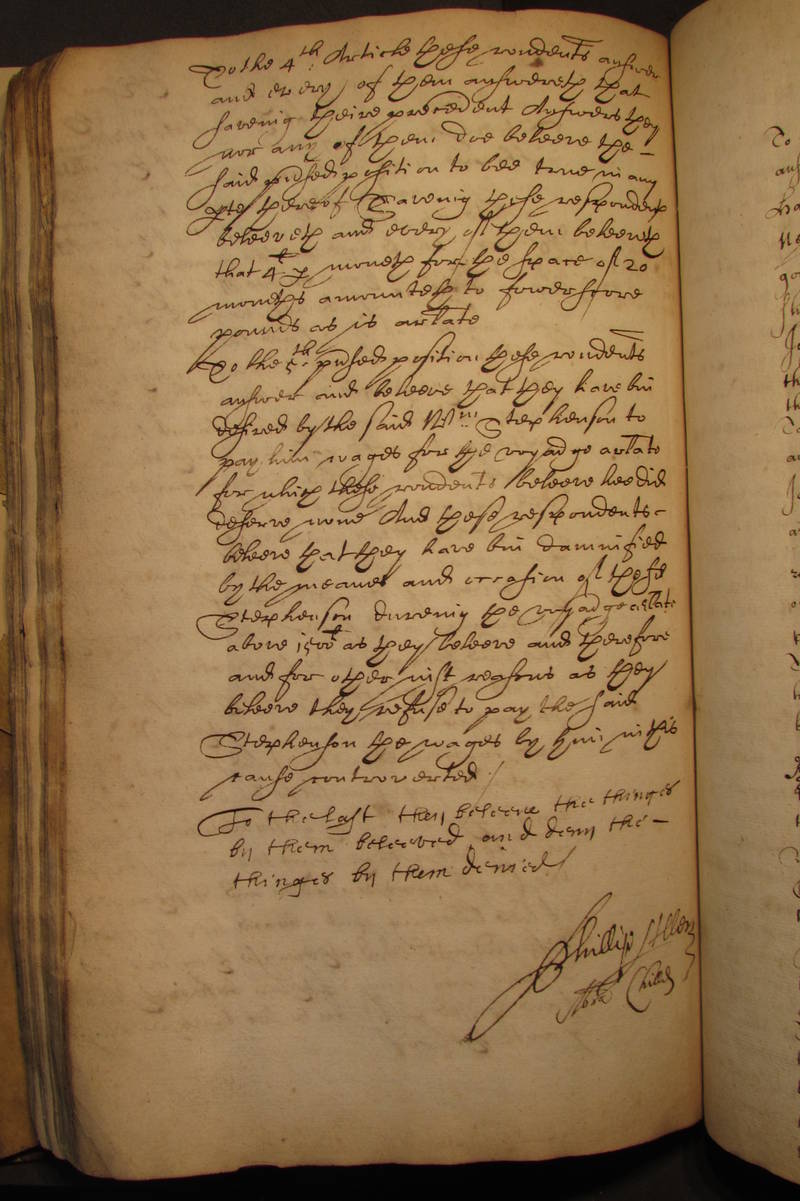 To the 4th Article these rondents answer
and every of them answereth that
saveing theire precedent Answers they
nor any of them doe beleeve the -
said prtsed position to bee true in any
pte thereof Saveing these respondents
beleeveth and every of them beleeveth
that 4li p moneth for the space of 20
moneths amounteth to fowerscore
pounds as is arlate
To the 5th prtsed position these rondents
answer and beleeve that they have bin
desired by the said Wm Stephenson to
pay him wages for the voyadge arlate
for which these rondents beleeve hee did
deserve none And these respondents -
beleeve that they have bin damnified
by the meanes and occasion of the sd
Stephenson dureing the voyadge arlate
above 1500li as they beleeve and therefore
and for other iust reasons as they
beleeve they refuse to pay the said
Stephenson the wages by him in this
cause controverted /
To the last they beleeve the things
by them beleeved and deny the -
thinges by them denied /
Phillip Allen
Child